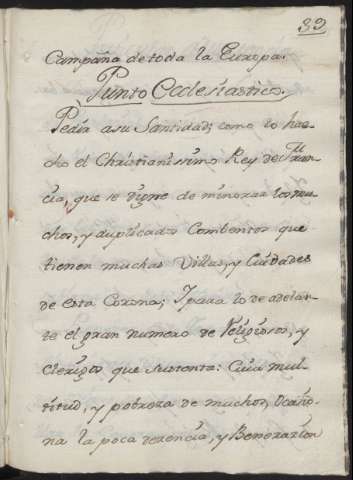 39
Campaña de toda la Europa.
Punto Ecclesiastico.
Pedir a su Santidad, como lo ha e-
cho el Christianissimo Rey de Fran-
cia, que se digne de minorar los mu-
chos, y duplicados Combentos que
tienen muchas Villas, y Ciudades
de esta Corona; Y para lo de adelan-
te el gran numero de Religiosos, y
Clerigos que sustenta: Cuia mul-
titud, y pobreza de muchos, Ocasio-
na la poca decencia, y Benerazion